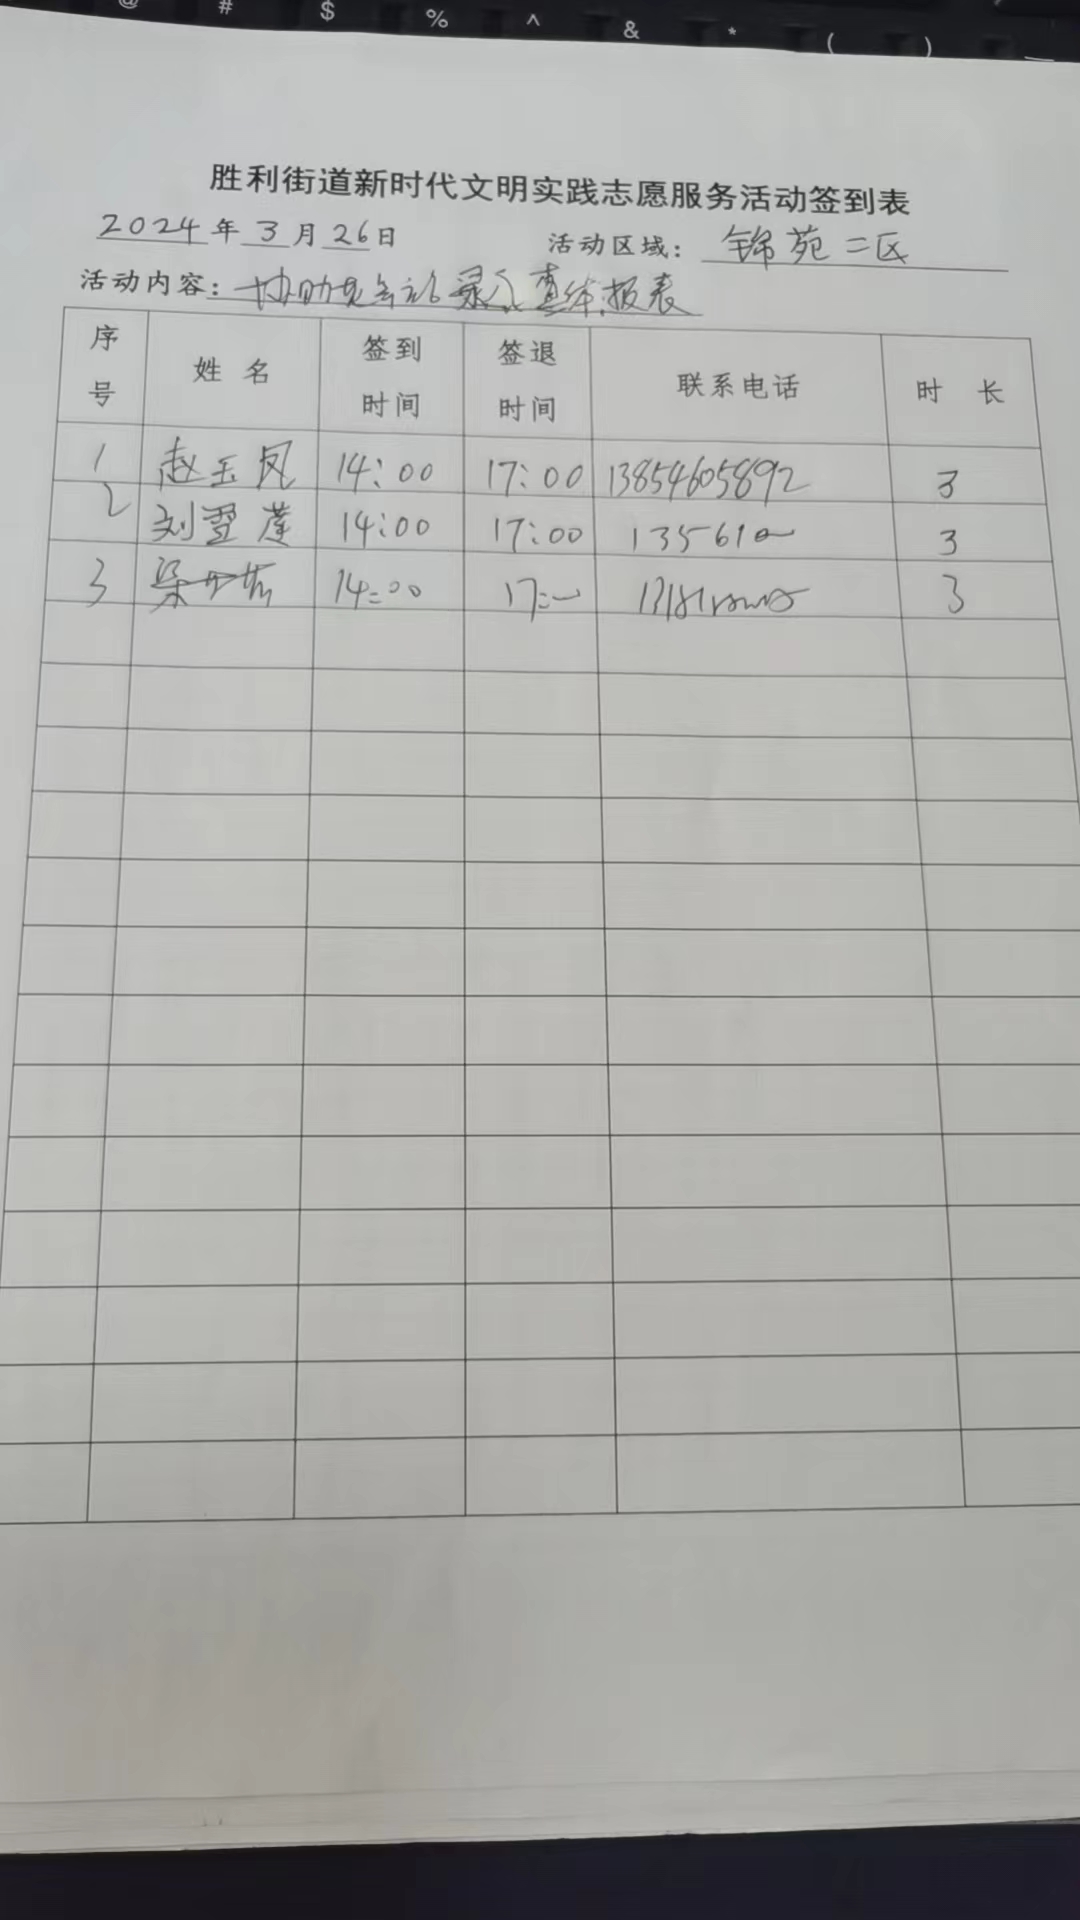 @ # $ % ^ & * ( )
胜利街道新时代文明实践志愿服务活动签到表
2024年3月26日 活动区域：锦苑二区
活动内容：协助 录入 报表
序号 姓名 签到时间 签退时间 联系电话 时长
1 赵玉凤 14:00 17:00 13854605892 3
2 刘翠莲 14:00 17:00 3
3 14:00 3